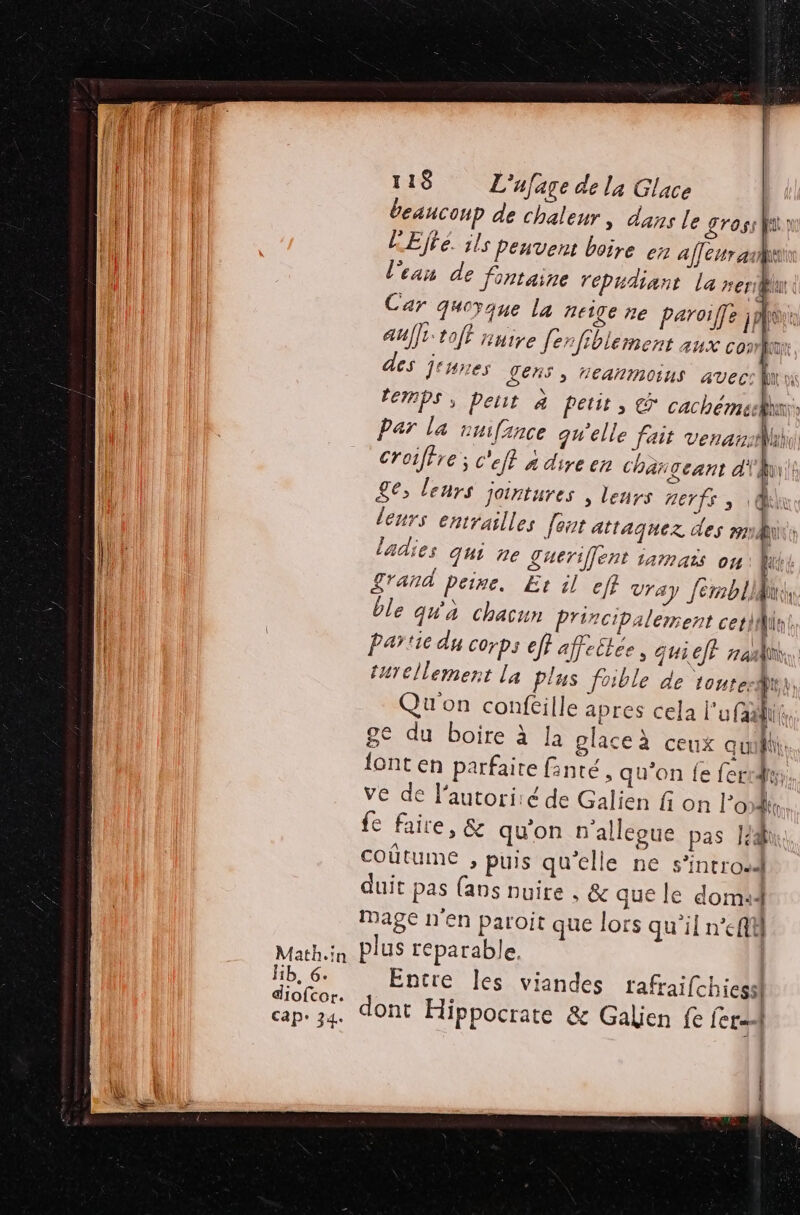 118 L'uſage de la Glace
beaucoup de chaleur, dans le gros
l'Eſté. ils peuvent boire en
l'eau de fontaine repudiant la
Car quoyque la neige ne paroiſſe
auſſi-toſt nuire ſenſiblement aux
des jeunes gens, neanmoins avec
temps, peut à petit, & cachéme
par la nuiſance qu'elle fait venant
croiſtre; c'eſt à dire en changeant
ge, leurs jointures, leurs nerfs,
leurs entrailles ſont attaquez des
ladies qui ne gueriſſent iamais ou
grand peine. Et il eſt vray ſembl
ble qu'à chacun principalement cet
partie du corps eſt affectée, qui eſt
turellement la plus foible de toute
Qu'on conſeille apres cela l'uſa
ge du boire à la glace à ceux qui
ſont en parfaite ſanté, qu'on ſe ſer
ve de l'autorité de Galien ſi on l'o
ſe faire, & qu'on n'allegue pas la
coûtume, puis qu'elle ne s'intro
duit pas ſans nuire, & que le dom
mage n'en paroit que lors qu'il n'eſt
plus reparable.
Math. in
lib. 6.
dioſcor.
cap. 34.
Entre les viandes rafraiſchies
dont Hippocrate & Galien ſe ſer